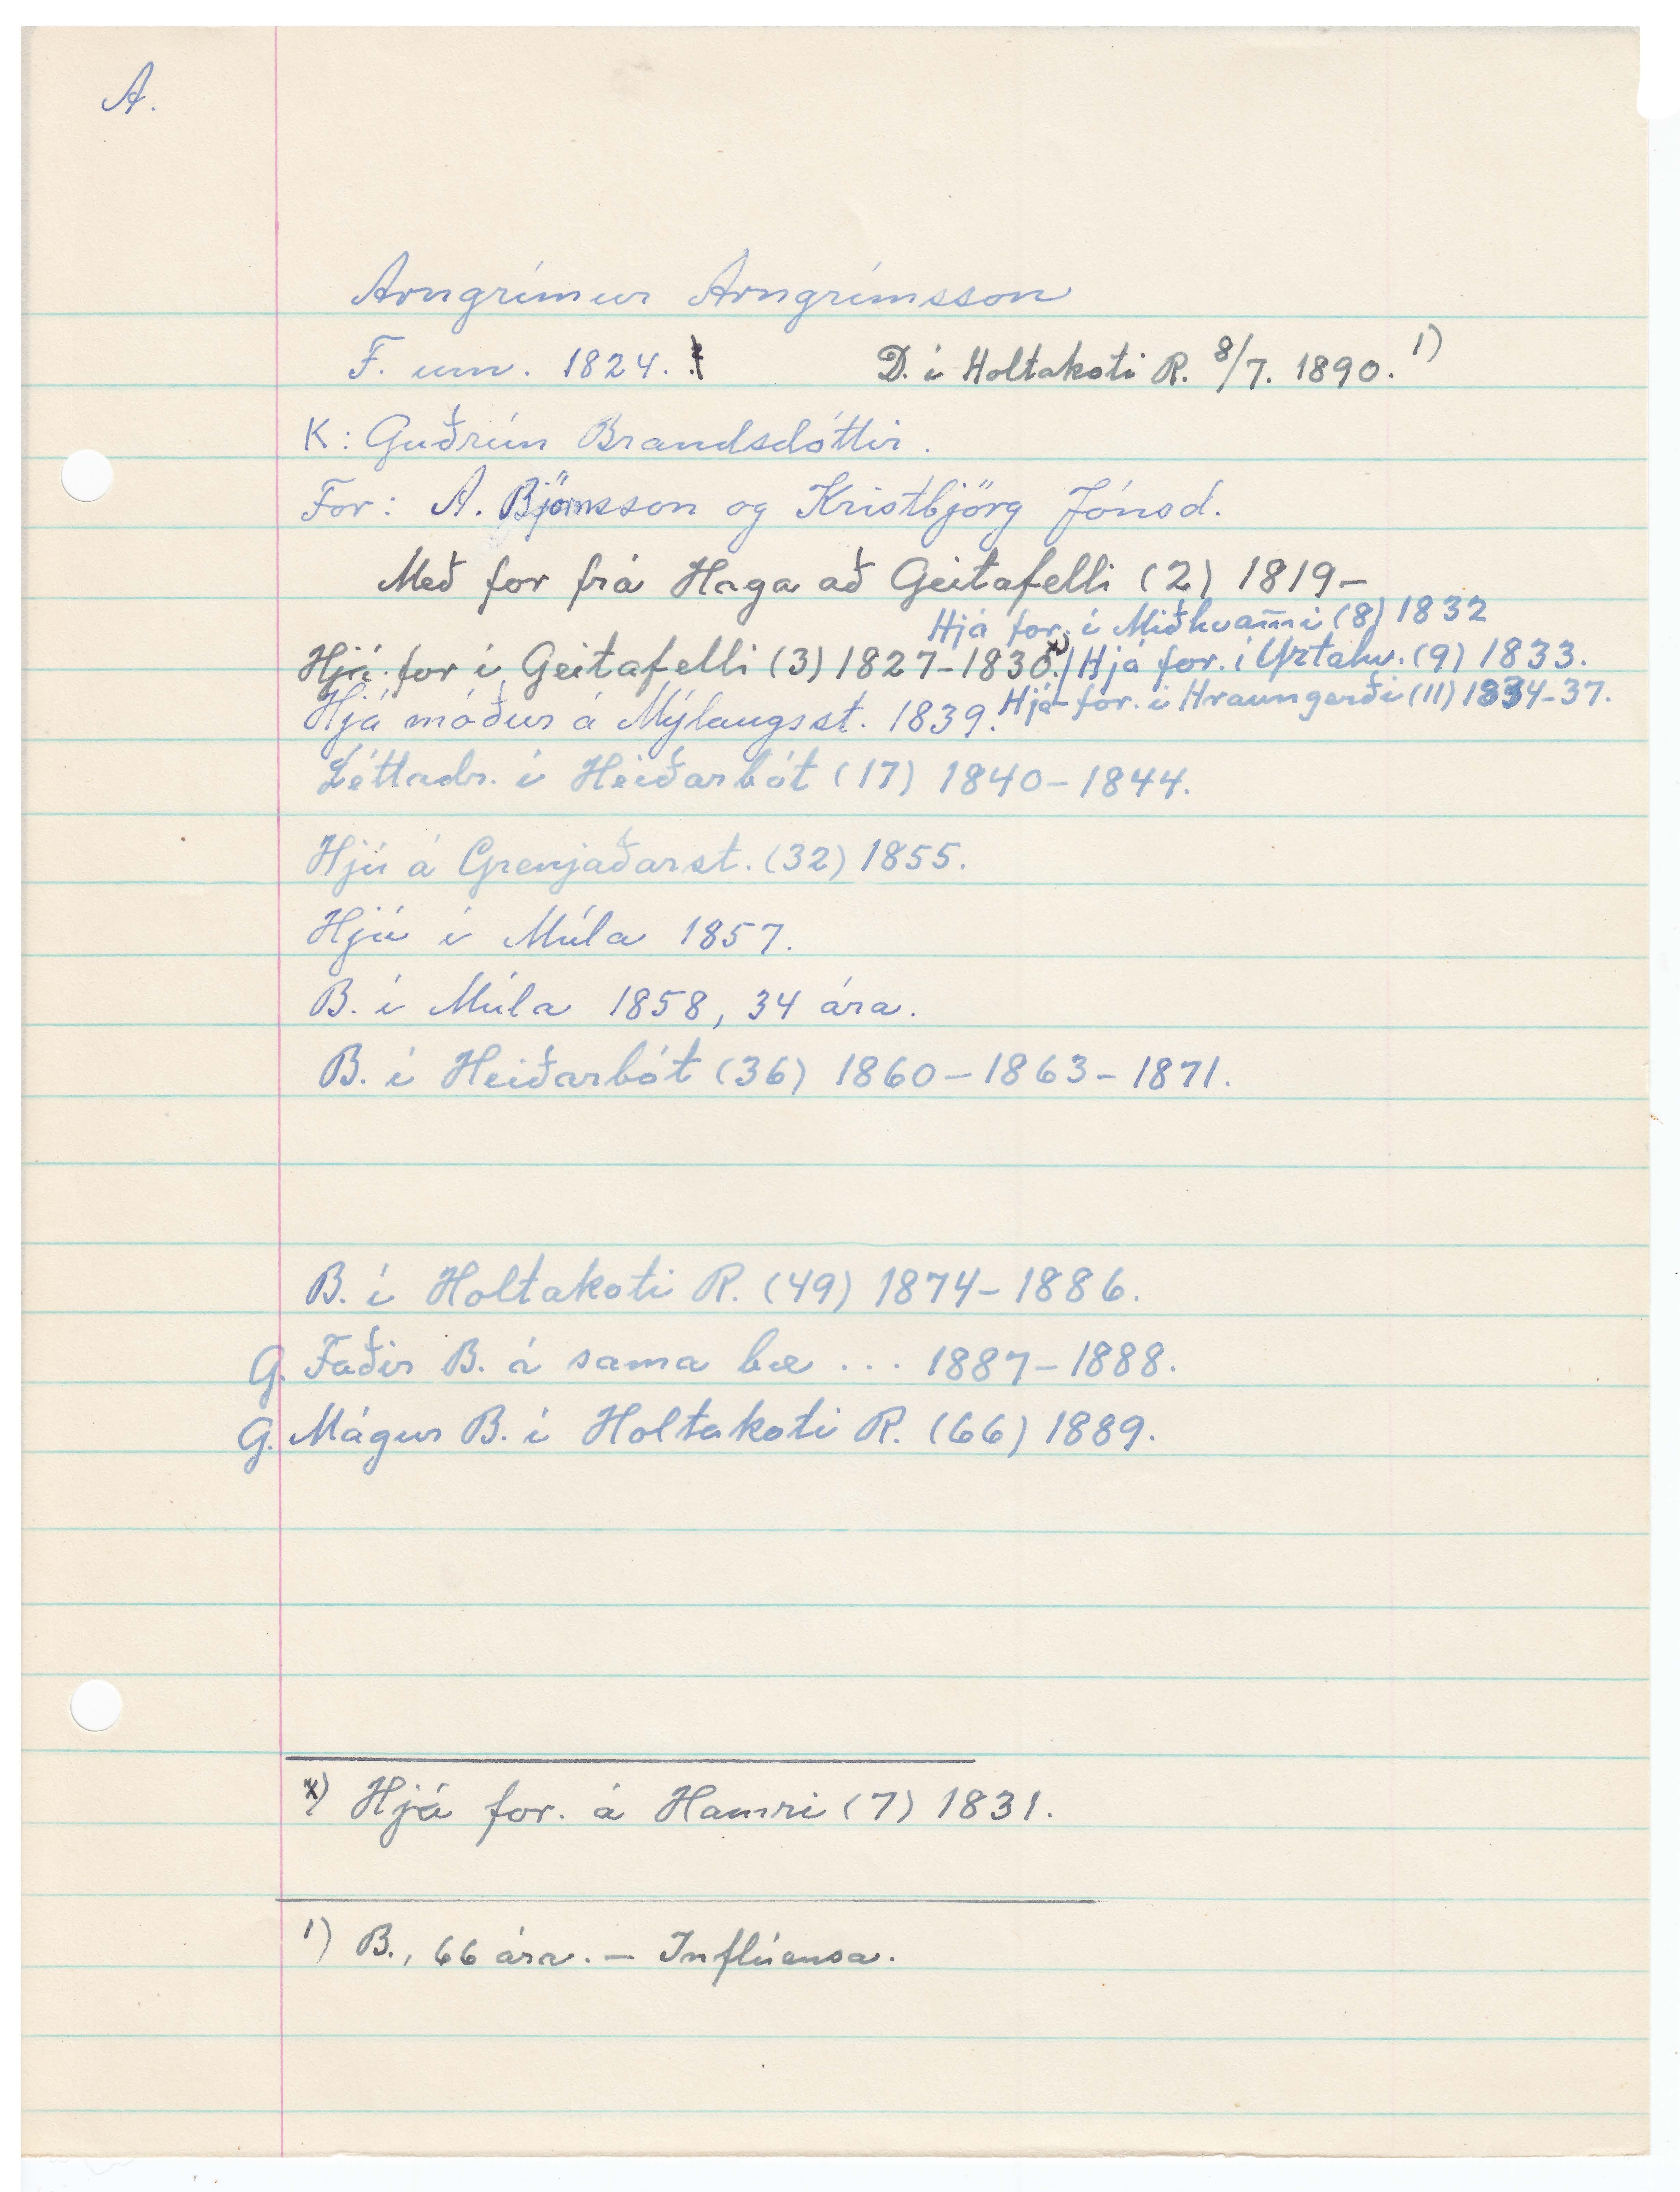 A.
Arngrímur Arngrímsson
F. um. 1824. D. í Holtakoti R. 8/7. 1890. 1)
K: Guðrún Brandsdóttir.
For: A. Björnsson og Kristbjörg Jónsd.
Með for frá Haga að Geitafelli (2) 1819-
Hjá for. í Miðhvam̄i (8) 1832
Hjá for í Geitafelli (3) 1827-1830.x) / Hjá for. í Yztahv. (9) 1833.
Hjá móður á Mýlaugsst. 1839. Hjá for. í Hraungerði (11) 1834-37.
Léttadr. í Heiðarbót (17) 1840-1844.
Hjú á Grenjaðarst. (32) 1855.
Hjú í Múla 1857.
B. í Múla 1858, 34 ára.
B. í Heiðarbót (36) 1860-1863-1871.
B. í Holtakoti R. (49) 1874-1886.
G. Faðir B. á sama bæ ... 1887-1888.
G. Mágur B. í Holtakoti R. (66) 1889.
x) Hjá for. á Hamri (7) 1831.
1) B., 66 ára. - Inflúensa.